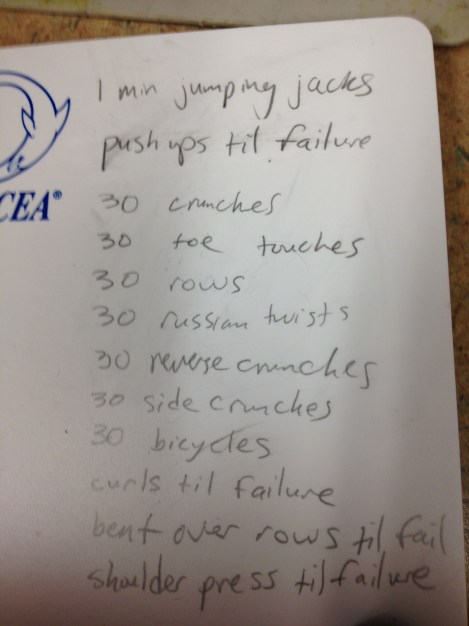 1 min jumping jacks
push ups til failure
CEA®
30 crunches
30 toe touches
30 rows
30 russian twists
30 reverse crunches
30 side crunches
30 bicycles
curls til failure
bent over rows til fail
shoulder press til failure